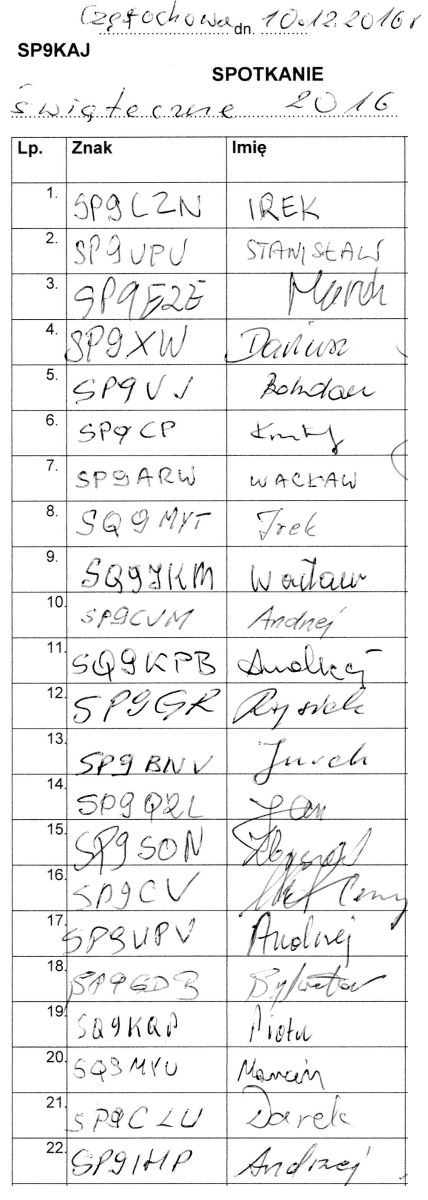 Częstochowa dn. 10.12.2016r
SP9KAJ
SPOTKANIE
świąteczne 2016
Lp. Znak Imię
1. SP9LZN IREK
2. SP9UPU STANISŁAW
3. SP9EZE Marek
4. SP9XW Dariusz
5. SP9VJ Bohdan
6. SP9CP
7. SP9ARW WACŁAW
8. SQ9MYT Irek
9. SQ9JKM Wacław
10. SP9CVM Andrzej
11. SQ9KPB Andrzej
12. SP9GR Rysiek
13. SP9BNV Jurek
14. SP9QZL Jan
15. SP9SON
16. SP9CV
17. SP9UPV Andrzej
18. Sylwester
19. SQ9KQP Piotr
20. SQ9MYU Marcin
21. SP9CLU Darek
22. SP9IHP Andrzej